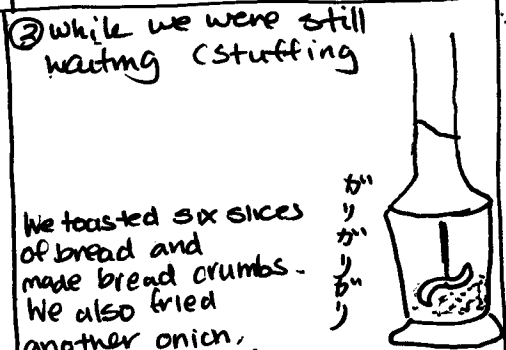 ③ While we were still
waiting (stuffing
We toasted six slices
of bread and
made bread crumbs.
We also fried
another onion,
がりがりがり